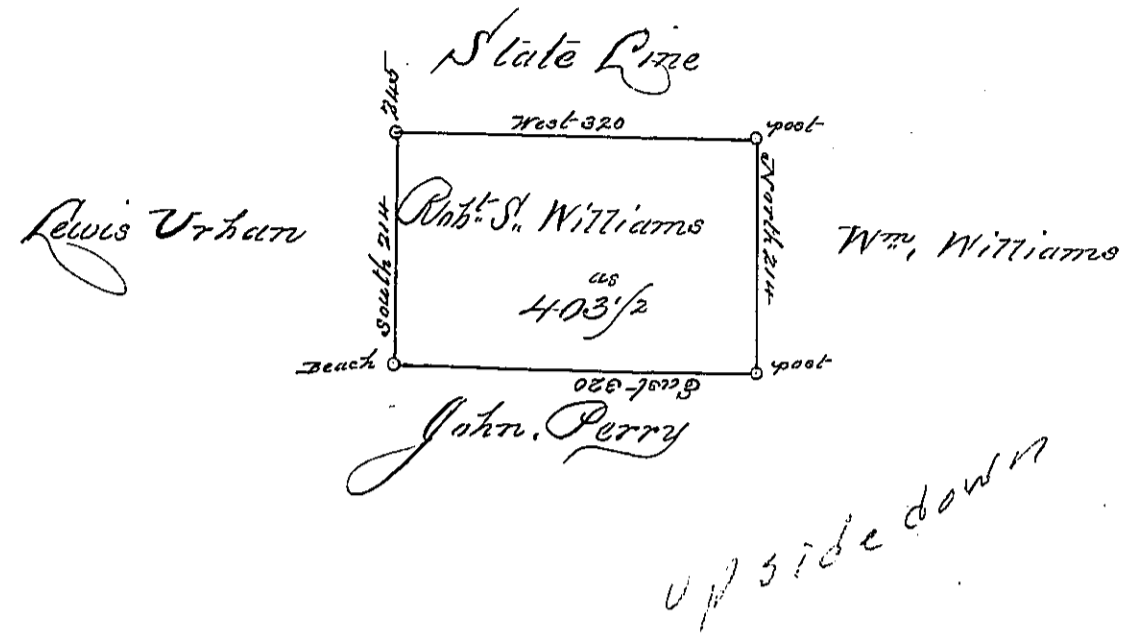 State Line
245
West 320
post
Lewis Urhan
South 214
Robt. S. Williams
North 214
Wm. Williams
as
403 1/2
Beach
East 320
post
John. Perry
upside down